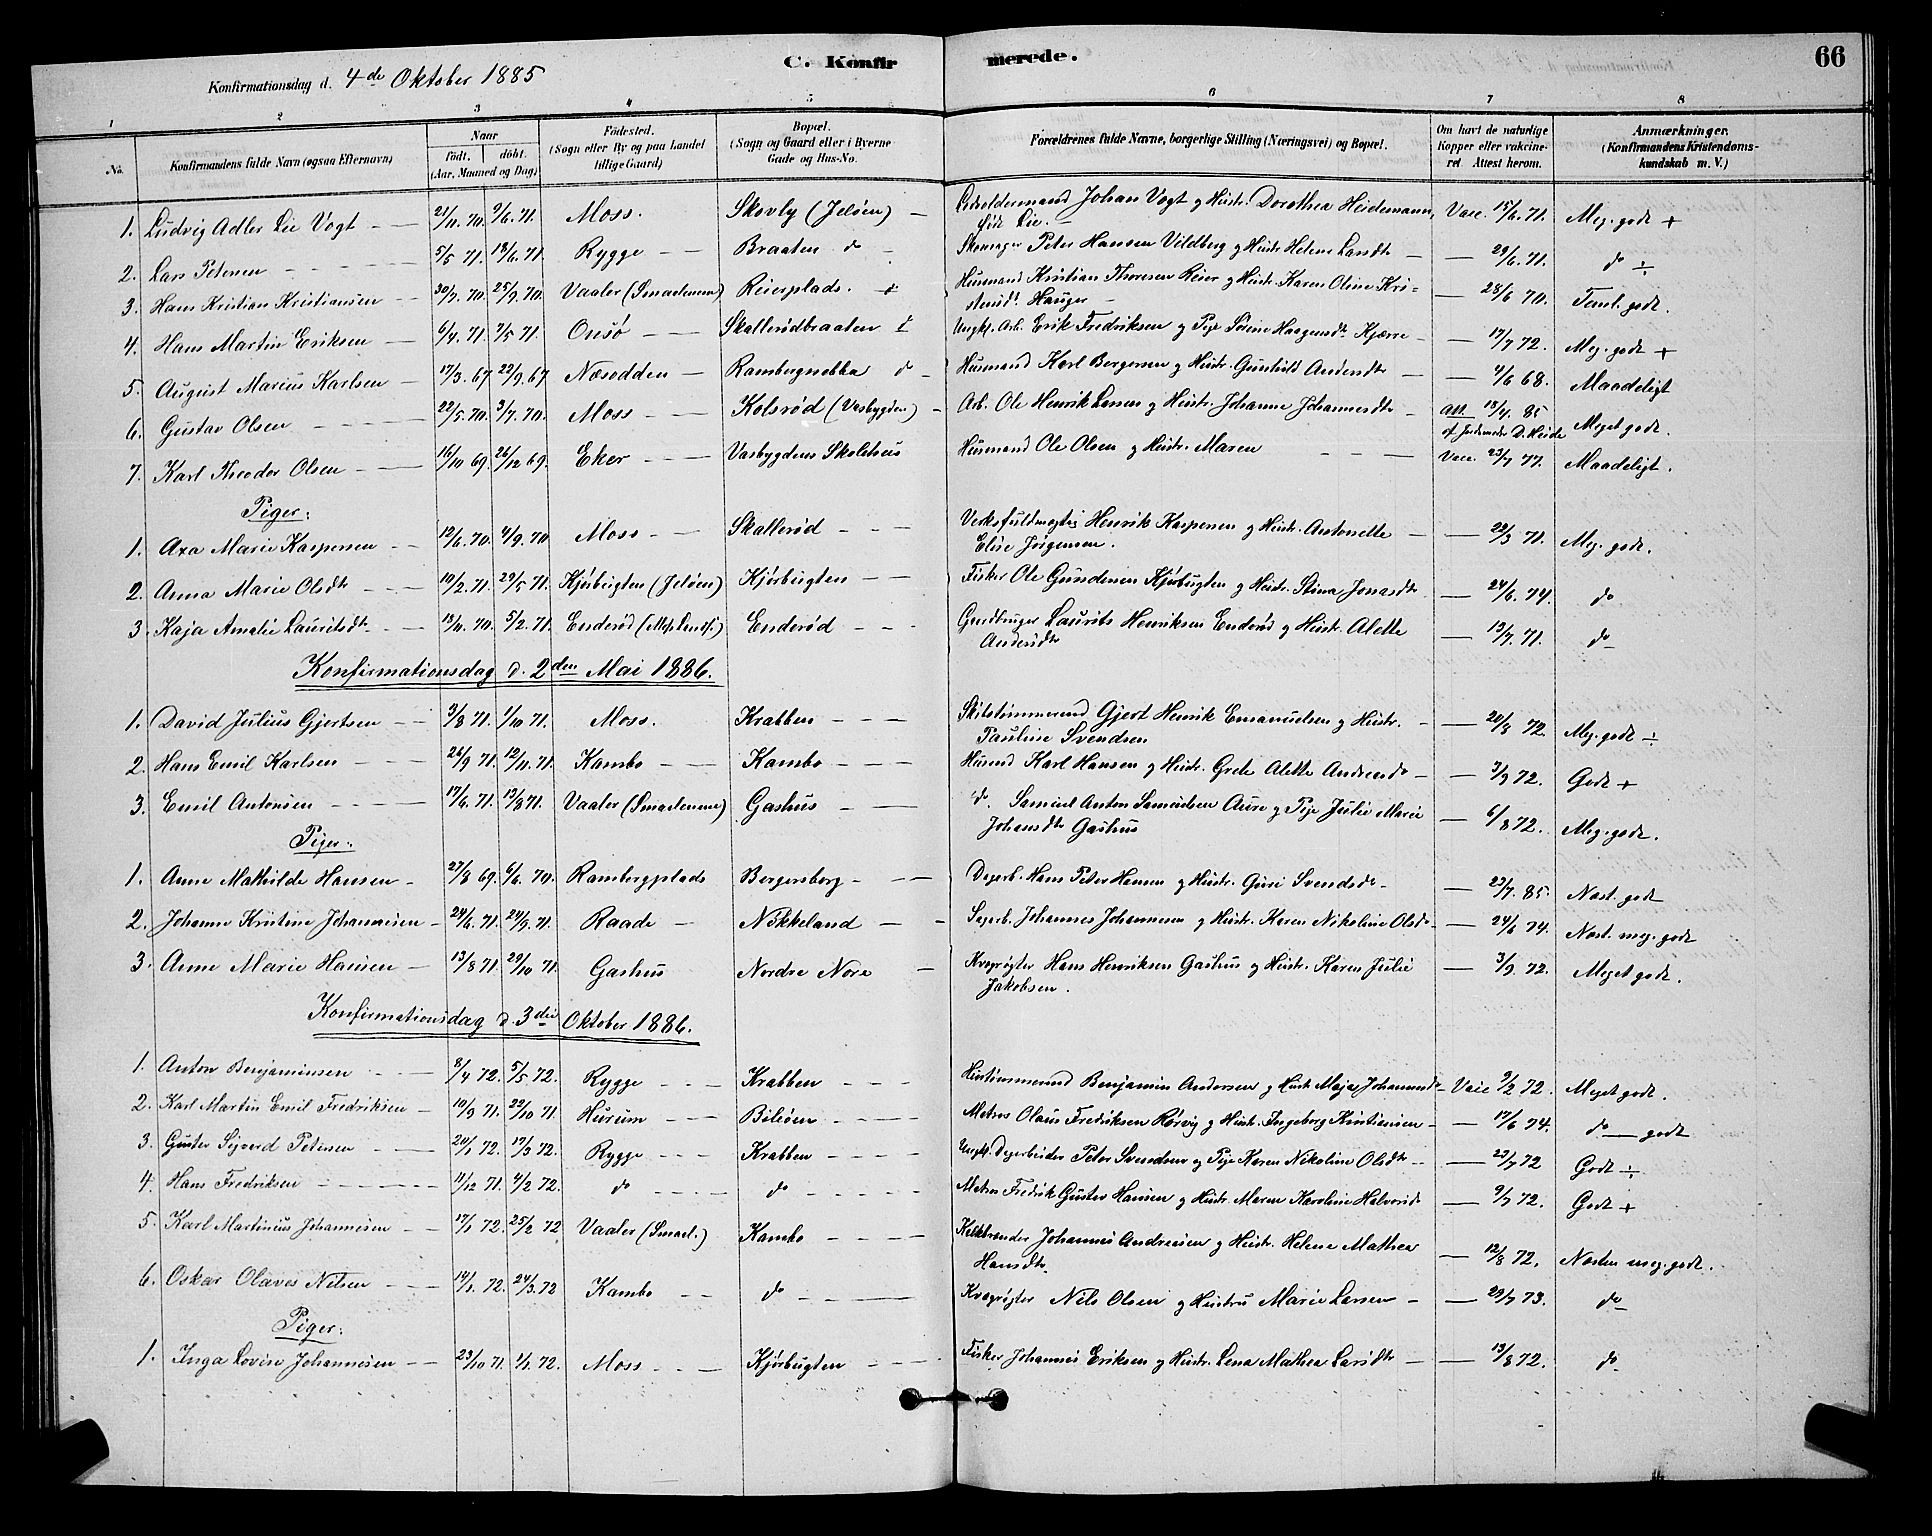 C. Konfirmerede. 66
Konfirmationsdag d. 4de Oktober 1885
1 2 3 4 5 6 7 8
No. Konfirmandens fulde Navn (ogsaa Efternavn) Naar født. døbt. (Aar, Maaned og Dag) Fødested. (Sogn eller By og paa Landet tillige Gaard) Bopæl. (Sogn og Gaard eller i Byerne Gade og Hus-No. Forældrenes fulde Navne, borgerlige Stilling (Næringsvei) og Bopæl. Om havt de naturlige Kopper eller vakcineret Attest herom. Anmærkninger. (Konfirmandens Kristendomskundskab m. V.)
1. Ludvig Adler Lie Vogt 21/11 70. 9/6 71. Moss. Skovly (Jeløen) Johan Vogt g Hustr. Dorothea Heidemann, født Lie. Vacc. 15/6 71. Meg. godt +
2. Lars Petersen 5/5 71. 18/6 71. Rygge Braaten do Skomager Peter Hansen Vildberg g Hustr Helene Larsdt 29/6 71. do ÷
3. Hans Kristian Kristiansen 30/7 70. 25/9 70. Vaaler (Smaalenene) Reierplads. + Husmand Kristian Thoresen Reier g Hustr. Karen Oline Kristensdt. Hauger 28/6 70. Teml. godt.
4. Hans Martin Eriksen 6/4 71. 7/5 71. Onsø Skallerødbraaten Ungk. Arb. Erik Fredriksen g Pige Sørine Haagensdt. Kjærre 17/7 72. Meg. godt +
5. August Marius Karlsen 17/3 67 22/9 67 Næsodden Rambergnebba do Husmand Karl Bergersen g Hustr. Gunhild Andersdt 4/6 68. Maadeligt
6. Gustav Olsen 22/5 70. 3/7 70. Moss Kolsrød (Vasbygden) Arb. Ole Henrik Larsen g Hustr. Johanne Johannesdt Att. 18/4 85 af Jordemoder D. Heide Meget godt.
7. Karl Theodor Olsen 16/10 69. 26/12 69. Eker Vasbygdens Skolehus Husmand Ole Olsen g Hustr. Maren Vacc. 23/7 77. Maadeligt.
Piger:
1. Axa Marie Kaspersen 12/6 70. 4/9 70 Moss Skallerød Verksfuldmægtig Henrik Kaspersen g Hustr. Antonette Elise Jørgensen. 22/3 71. Meg. godt.
2. Anna Marie Olsdt 10/2 71. 29/5 71. Kjørbugten (Jeløen) Kjørbugten Fisker Ole Gundersen Kjørbugten g Hustr. Stina Jonasdt 24/6 74. do
3. Kaja Amelie Lauritsdt 18/11 70. 5/2 71. Enderød Enderød Gaardbruger Laurits Henriksen Enderød g Hustr. Alette Andersdt 13/7 71. do
Konfirmationsdag d. 2den Mai 1886.
1. David Julius Gjertsen 3/8 71. 1/10 71. Moss. Krabben Skibstømmermand Gjert Henrik Emanuelsen g Hustr. Pauline Svendsen 20/8 72. Meg. godt ÷
2. Hans Emil Karlsen 26/9 71. 12/11 71. Kambo Kambo Husmd Karl Hansen g Hustr. Grete Alette Andersdt 3/9 72. Godt +
3. Emil Antonsen 17/6 71. 13/8 71. Vaaler (Smaalenene) Gashus do. Samuel Anton Samuelsen Aure g Pige Julie Marie Johansdt Gashus 6/8 72. Meg. godt.
Piger:
1. Anne Mathilde Hansen 27/8 69. 6/6 70. Rambergplads Bergersborg Dagarb. Hans Peter Hansen g Hustr. Guri Svendsdt 23/7 85. Næst. godt
2. Johanne Kristine Johannesen 24/6 71. 24/9 71. Raade Nøkkeland Sagarb. Johannes Johannesen g Hustr. Karen Nikoline Olsdt 24/6 74. Næst. meg. godt
3. Anne Marie Hansen 13/8 71. 29/10 71. Gashus Nordre Nore Kvægrøgter Hans Henriksen Gashus g Hustr. Karen Julie Jakobsen. 3/9 72. Meget godt.
Konfirmationsdag d. 3die Oktober 1886.
1. Anton Benjaminsen 8/4 72. 5/5 72. Rygge Krabben Benjamin Andersen g Hustr. Maja Johannesdt Vacc 9/2 72. Meget godt.
2. Karl Martin Emil Fredriksen 10/9 71. 22/10 71. Hurum Bileøen Matros Olaus Fredriksen Rørvig g Hustr. Ingeborg Kristiansen 17/6 74. do godt
3. Gustav Sigvard Petersen 20/1 72. 17/3 72. Rygge Krabben Ungk. Dagarbeider Peter Svendsen g Pige Karen Nikoline Olsdt 23/7 72 Godt ÷
4. Hans Fredriksen 11/12 71. 4/2 72. do do Matros Fredrik Gustav Hansen g Hustr. Maren Karoline Halvorsdt 9/7 72. Godt +
5. Karl Martinius Johannesen 17/1 72. 25/2 72 Vaaler (Smaal.) Kambo Kalkbrænder Johannes Andreasen g Hustr. Helene Mathea Hansdt. 12/8 72. Næsten meg. godt.
6. Oskar Olaves Nilsen 14/1 72. 24/3 72 Kambo do Kvægrøgter Nils Olsen g Hustru Marie Larsen 29/7 73. do
Piger:
1. Inga Lovise Johannesen 23/10 71. 1/1 72. Moss Kjørbugten Fisker Johannes Eriksen g Hustr. Lena Mathea Larsdt 13/8 72. do